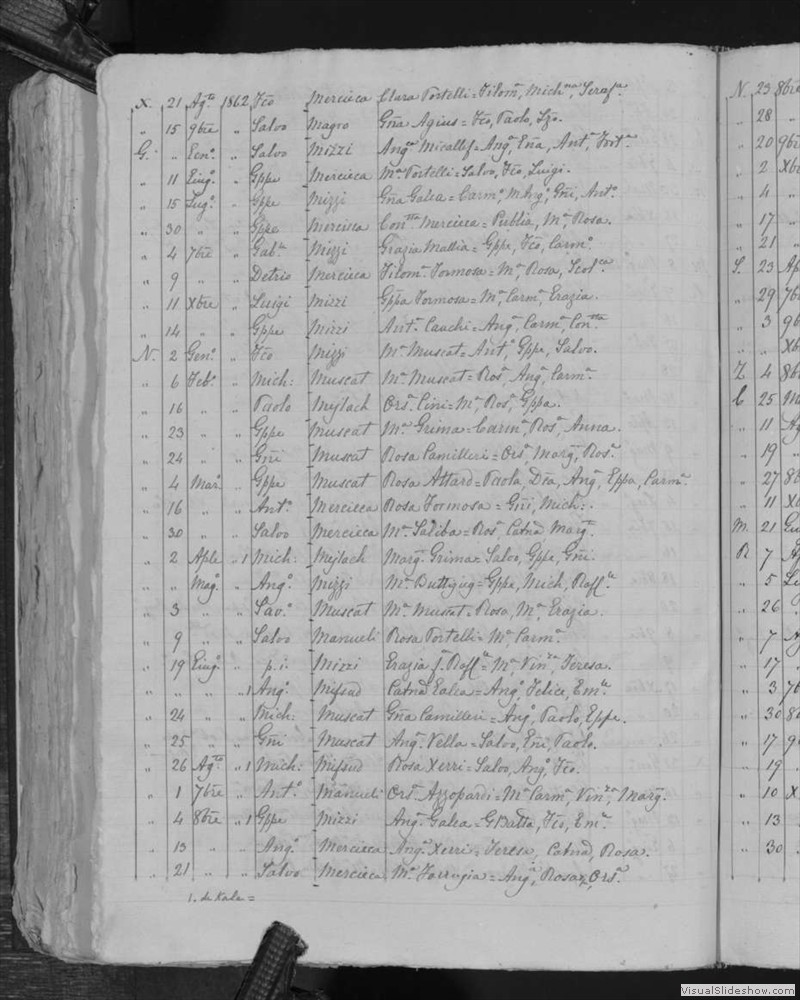 X. 21 Ag.to 1862 Fco Mercieca Clara Portelli = Filom.a, Mich.na, Seraf.a
" 15 9bre " Salvo Magro Gña Agius = Fco, Paolo, Lzo.
G. " Gen.o " Salvo Mizzi Ang.a Micallef = Ang.a, Gña, Ant.a, Fort.a
" 11 Giug.o " Gppe Mercieca M.a Portelli = Salvo, Fco, Luigi.
" 15 Lug.o " Gppe Mizzi Gña Galea = Carm.o, M.Ang.o, Gñi, Ant.o
" 30 " " Gppe Mercieca Con.tta Mercieca = Publia, M.a Rosa.
" 4 7bre " Gab.le Mizzi Grazia Mallia = Gppe, Fco, Carm.o
" 9 " " Mercieca Filom.a Formosa = M.a Rosa, Scol.ca
" 11 Xbre " Luigi Mizzi Gppa Formosa = M.a Carm.a, Grazia.
" 14 " " Gppe Mizzi Ant.a Cauchi = Ang.a, Carm.a, Con.tta
N. 2 Gen.o " Fco Mizzi M.a Muscat = Ant.o, Gppe, Salvo.
" 6 Feb.o " Mich: Muscat M.a Muscat = Ros.a, Ang.a, Carm.a
" 16 " " Paolo Mejlach Ors.a Cini = M.a Ros.a, Gppa.
" 23 " " Gppe Muscat M.a Grima = Carm.a, Ros.a, Anna.
" 24 " " Gñi Muscat Rosa Camilleri = Ors.a, Marg.a, Ros.a
" 4 Mar.o " Gppe Muscat Rosa Attard = Paola, Dca, Ang.a, Gppa, Carm.a
" 16 " " Ant.o Mercieca Rosa Formosa = Gñi, Mich:.
" 30 " " Salvo Mercieca M.a Saliba = Ros.a, Catña Marg.a
" 2 Aple " 1 Mich: Mejlach Marg.a Grima = Salvo, Gppe, Gñi.
" " Mag.o " Ang.o Mizzi M.a Buttigieg = Gppe, Mich, Raff.le
" 3 " " Sav.o Muscat M.a Muscat = Rosa, M.a, Grazia.
" 9 " " Salvo Manueli Rosa Portelli = M.a Carm.a
" 19 Giug.o " p.i. Mizzi Grazia f. Raff.le = M.a, Vin.za, Teresa.
" " " " 1 Ang.o Mifsud Catña Galea = Ang.o, Felice, Em.le
" 24 " " Mich: Muscat Gña Camilleri = Ang.o, Paolo, Gppe.
" 25 " " Gñi Muscat Ang.a Vella = Salvo, Gñi, Paolo.
" 26 Ag.to " 1 Mich: Mifsud Rosa Xerri = Salvo, Ang.o, Fco.
" 1 7bre " Ant.o Manueli Ors.a Azzopardi = M.a Carm.a, Vin.za, Marg.a
" 4 8bre " 1 Gppe Mizzi Ang.a Galea = GBatta, Fco, Em.le
" 13 " " Ang.o Mercieca Ang.a Xerri = Teresa, Catña, Rosa.
" 21 " " Salvo Mercieca M.a Farrugia = Ang.a, Rosa, Ors.a
1. de Kala =
N. 23 8bre
" 28 "
" 20 9bre
" 2 Xbre
" 4 "
" 17 "
" 21 "
S. 23 Ap
" 29 7b
" 3 9b
" " Xb
Z 4 8b
C 25 Ma
" 11 Ag
" 19 "
" 27 8b
" 11 Xb
M. 21 Gi
R 7 Ag
" 5 Lu
" 26
" 7 Ag
" 17 "
" 3 7b
" 30 8b
" 17 9b
" 19 "
" 10 X
" 13 "
" 30 "
VisualSlideshow.com